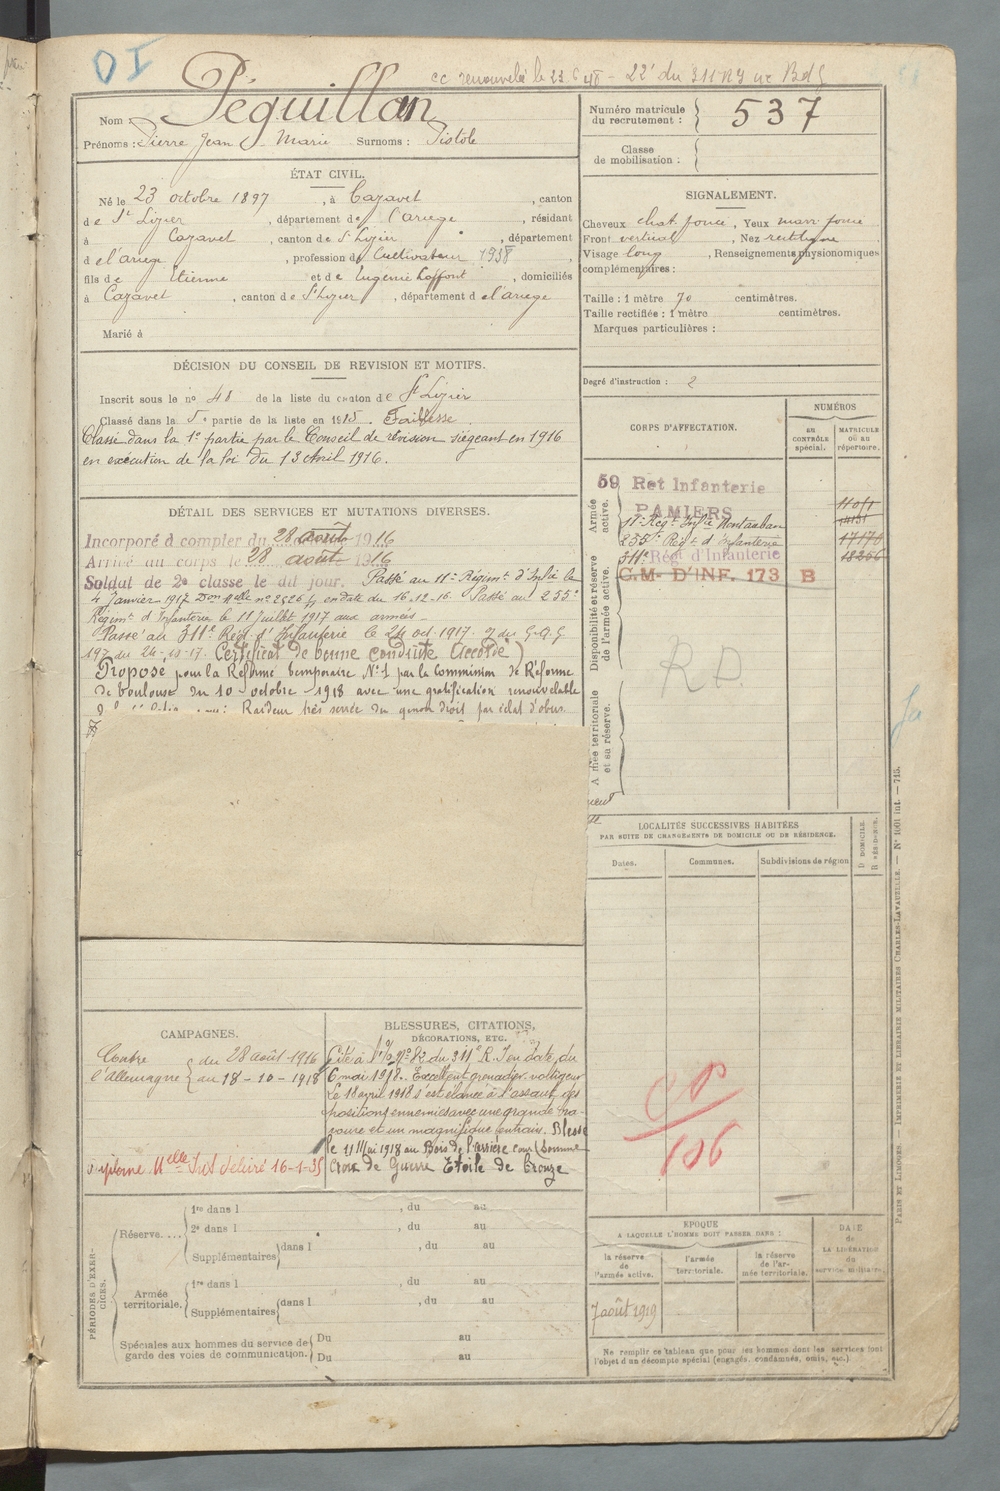 OI
cc renouvelé le 23 6 48 - 22e du 311 RI
Nom : Péguillan
Prénoms : Pierre Jean Marie Surnoms : Pistole
Numéro matricule du recrutement : 537
Classe de mobilisation :
ÉTAT CIVIL.
Né le 23 octobre 1897, à Cazavet, canton
de St Lizier, département de l'ariège, résidant
à Cazavet, canton de St Lizier, département
de l'ariège, profession de Cultivateur 1938
fils de Etienne et de Eugénie Laffont, domiciliés
à Cazavet, canton de St Lizier, département de l'ariège
Marié à
SIGNALEMENT.
Cheveux chat. foncé, Yeux marr. foncé
Front vertical, Nez rectiligne
Visage long, Renseignements physionomiques
complémentaires :
Taille : 1 mètre 70 centimètres.
Taille rectifiée : 1 mètre centimètres.
Marques particulières :
Degré d'instruction : 2
DÉCISION DU CONSEIL DE REVISION ET MOTIFS.
Inscrit sous le no 48 de la liste du canton de St Lizier
Classé dans la 5e partie de la liste en 1915. Faiblesse
Classé dans la 1e partie par le Conseil de révision siégeant en 1916
en exécution de la loi du 13 Avril 1916.
DÉTAIL DES SERVICES ET MUTATIONS DIVERSES.
Incorporé à compter du 28 août 1916
Arrivé au corps le 28 août 1916
Soldat de 2e classe le dit jour. Passé au 11e Régimt d'Infie le
4 Janvier 1917 Don Melle no 2526 en date du 16-12-16. Passé au 255e
Régimt d'Infanterie le 11 juillet 1917 aux armées
Passé au 311e Régt d'Infanterie le 24 oct. 1917. du G.Q.G
197 du 24-10-17. Certificat de bonne conduite Accordé
Proposé pour la Réforme temporaire No 1 par la Commission de Réforme
de Toulouse du 10 octobre 1918 avec une gratification renouvelable
Raideur très serrée du genou droit par éclat d'obus
CORPS D'AFFECTATION.
NUMÉROS
au contrôle spécial.
MATRICULE ou au répertoire.
Armée active.
59 Ret Infanterie
PAMIERS
11e Régt Infie Montauban
255e Régt d'Infanterie
311e Régt d'Infanterie 18256
Disponibilité et réserve de l'armée active.
C.M. D'INF. 173 B
R.D.
Armée territoriale et sa réserve.
LOCALITÉS SUCCESSIVES HABITÉES
PAR SUITE DE CHANGEMENTS DE DOMICILE OU DE RÉSIDENCE.
Dates. Communes. Subdivisions de région
CAMPAGNES.
Contre l'Allemagne
du 28 août 1916
au 18-10-1918
BLESSURES, CITATIONS,
DÉCORATIONS, ETC.
Cité à l'O No 82 du 311e R.I en date du
6 mai 1918. Excellent grenadier voltigeur
Le 18 avril 1918 s'est élancé à l'assaut des
positions ennemies avec une grande bra-
voure et un magnifique entrain. Blessé
le 11 Mai 1918 au Bois de l'arrière cour (Somme
Croix de Guerre Etoile de bronze
délivré 16-1-35
CP
106
PÉRIODES D'EXERCICES.
Réserve....
1re dans l , du au
2e dans l , du au
Supplémentaires dans l , du au
Armée territoriale.
1re dans l , du au
Supplémentaires dans l , du au
Spéciales aux hommes du service de garde des voies de communication.
Du au
Du au
EPOQUE
A LAQUELLE L'HOMME DOIT PASSER DANS :
la réserve de l'armée active.
l'armée territoriale.
la réserve de l'armée territoriale.
DATE de LA LIBÉRATION du service militaire.
7 août 1919
Ne remplir ce tableau que pour les hommes dont les services font
l'objet d'un décompte spécial (engagés, condamnés, omis, etc.)
PARIS ET LIMOGES. — IMPRIMERIE ET LIBRAIRIE MILITAIRES CHARLES-LAVAUZELLE. — No 1001 int. — 715.